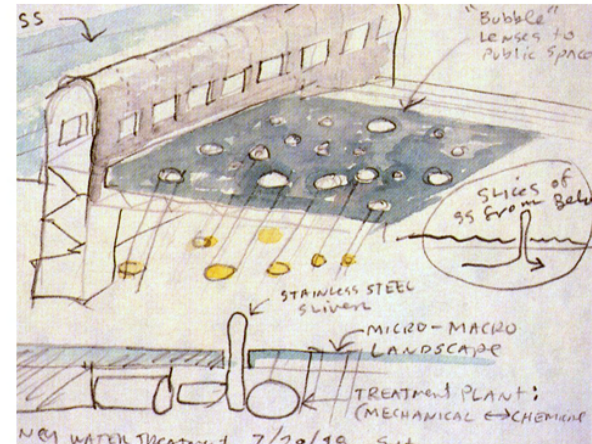 SS
"Bubble"
Lenses to
Public Space
slices of
SS from Below
STAINLESS STEEL
sliver
MICRO-MACRO
LANDSCAPE
TREATMENT PLANT:
(MECHANICAL ↔ CHEMICAL
WATER TREATMENT